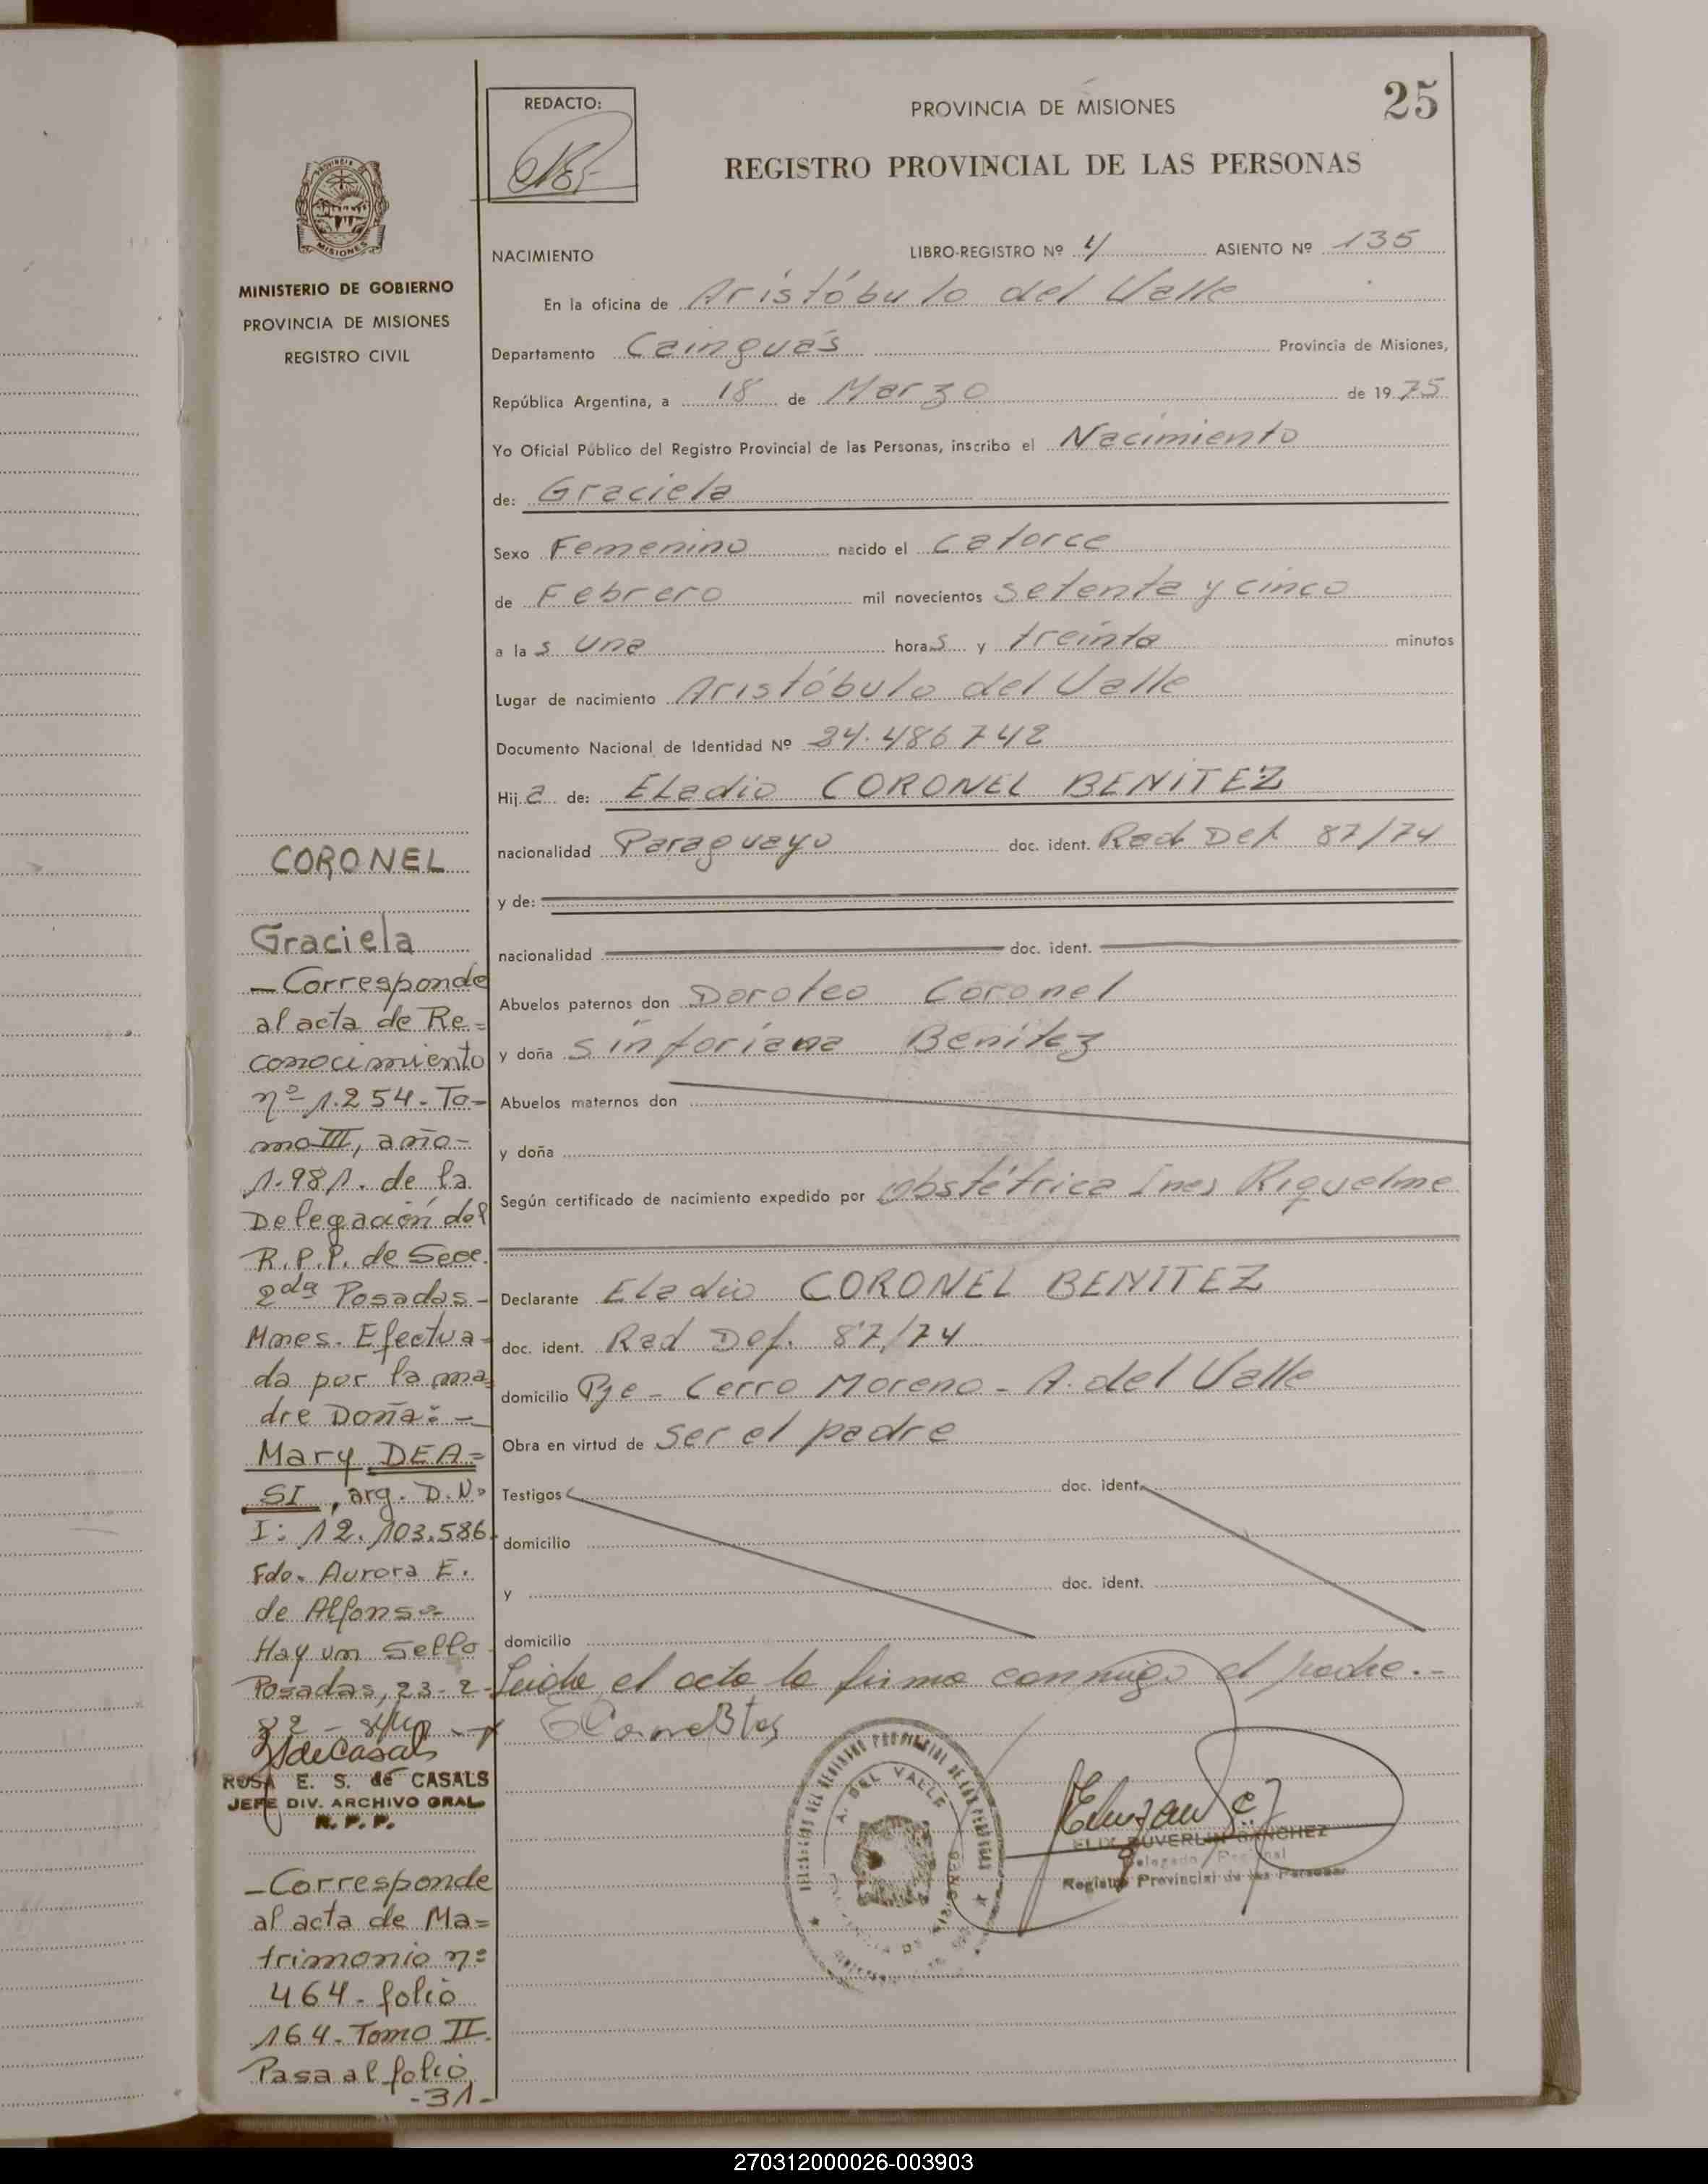 25
REDACTO:
PROVINCIA DE MISIONES
REGISTRO PROVINCIAL DE LAS PERSONAS
PROVINCIA DE
MISIONES
MINISTERIO DE GOBIERNO
PROVINCIA DE MISIONES
REGISTRO CIVIL
NACIMIENTO LIBRO-REGISTRO Nº ASIENTO Nº 135
En la oficina de Aristóbulo del Valle
Departamento Cainguás Provincia de Misiones,
República Argentina, a 18 de Marzo de 1975
Yo Oficial Público del Registro Provincial de las Personas, inscribo el Nacimiento
de: Graciela
Sexo Femenino nacido el Catorce
de Febrero mil novecientos setenta y cinco
a las una horas y treinta minutos
Lugar de nacimiento Aristóbulo del Valle
Documento Nacional de Identidad Nº 24.486742
Hija de: Eladio CORONEL BENITEZ
nacionalidad Paraguayo doc. ident. Rad Def 87/74
y de:
nacionalidad doc. ident.
Abuelos paternos don Doroteo Coronel
y doña Sinforiana Benitez
Abuelos maternos don
y doña
Según certificado de nacimiento expedido por Obstétrica Ines Riquelme
Declarante Eladio CORONEL BENITEZ
doc. ident. Rad Def. 87/74
domicilio Pje - Cerro Moreno - A. del Valle
Obra en virtud de Ser el padre
Testigos doc. ident.
domicilio
y doc. ident.
domicilio
Leida el acta la firma conmigo el padre.-
A. DEL VALLE
ELIX DUVERLIN SANCHEZ
Delegado Regional
Registro Provincial de las Personas
CORONEL
Graciela
- Corresponde
al acta de Re=
conocimiento
nº 1.254- To-
mo III, año-
1.981. de la
Delegación del
R.P.P. de Secc.
2da Posadas-
Mnes. Efectua=
da por la ma=
dre Doña: -
Mary DEA=
SI, arg. D.N.
I: 12.103.586.
Fdo. Aurora E.
de Alfonso-
Hay un Sello
Posadas, 23-2-
82 -
ROSA E. S. de CASALS
JEFE DIV. ARCHIVO GRAL
R. P. P.
- Corresponde
al acta de Ma=
trimonio nº
464- folio
164- Tomo II.
Pasa al folio
-31-
270312000026-003903